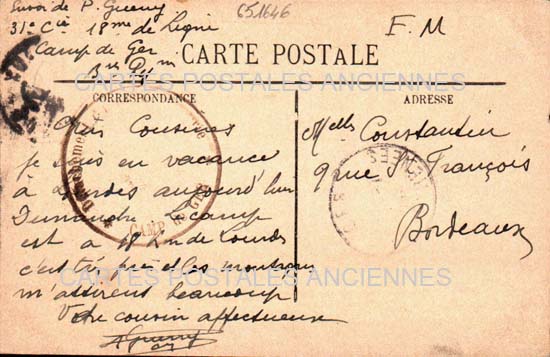 Envoi de P. Guerry
651646
31e Cie 18me de Ligne
F. M
Camp de Ger
CARTE POSTALE
CARTES POSTALES ANCIENNES
CORRESPONDANCE
ADRESSE
Cousines
je suis en vacance
à Lourdes aujourd'hui
Dimanche Le camp
est à 18 Km de Lourdes
c'est très les montagnes
m'attirent beaucoup
Votre cousin affectueux
Melles Constantin
9 rue St François
Bordeaux
CAMP DE GER
CARTES POSTALES ANCIENNES